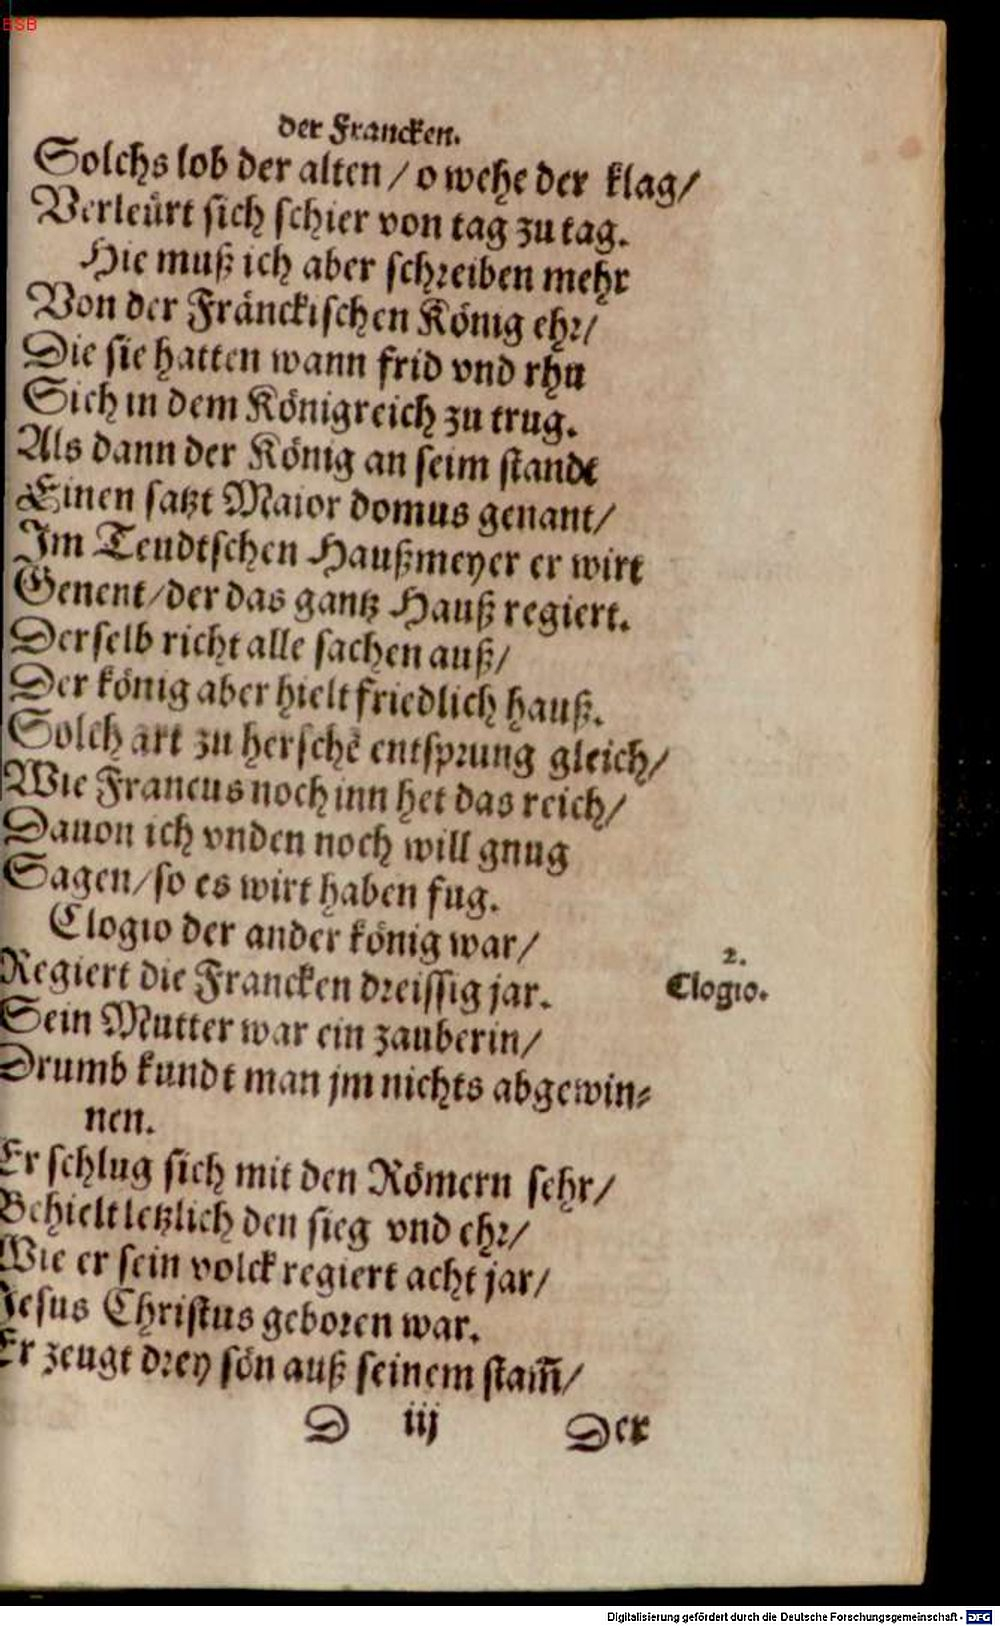 BSB
der Francken.
Solchs lob der alten / o wehe der klag /
Verleürt sich schier von tag zu tag.
Hie muß ich aber schreiben mehr
Von der Fränckischen König ehr /
Die sie hatten wann frid vnd rhu
Sich in dem Königreich zu trug.
Als dann der König an seim standt
Einen satzt Maior domus genant /
Im Teudtschen Haußmeyer er wirt
Genent / der das gantz Hauß regiert.
Derselb richt alle sachen auß /
Der könig aber hielt friedlich hauß.
Solch art zu herschē entsprung gleich /
Wie Francus noch inn het das reich /
Dauon ich vnden noch will gnug
Sagen / so es wirt haben fug.
Clogio der ander könig war /
Regiert die Francken dreissig jar.
2.
Clogio.
Sein Mutter war ein zauberin /
Drumb kundt man jm nichts abgewin⸗
nen.
Er schlug sich mit den Römern sehr /
Behielt letzlich den sieg vnd ehr /
Wie er sein volck regiert acht jar /
Jesus Christus geboren war.
Er zeugt drey sön auß seinem stam̄ /
D iij Der
Digitalisierung gefördert durch die Deutsche Forschungsgemeinschaft - DFG